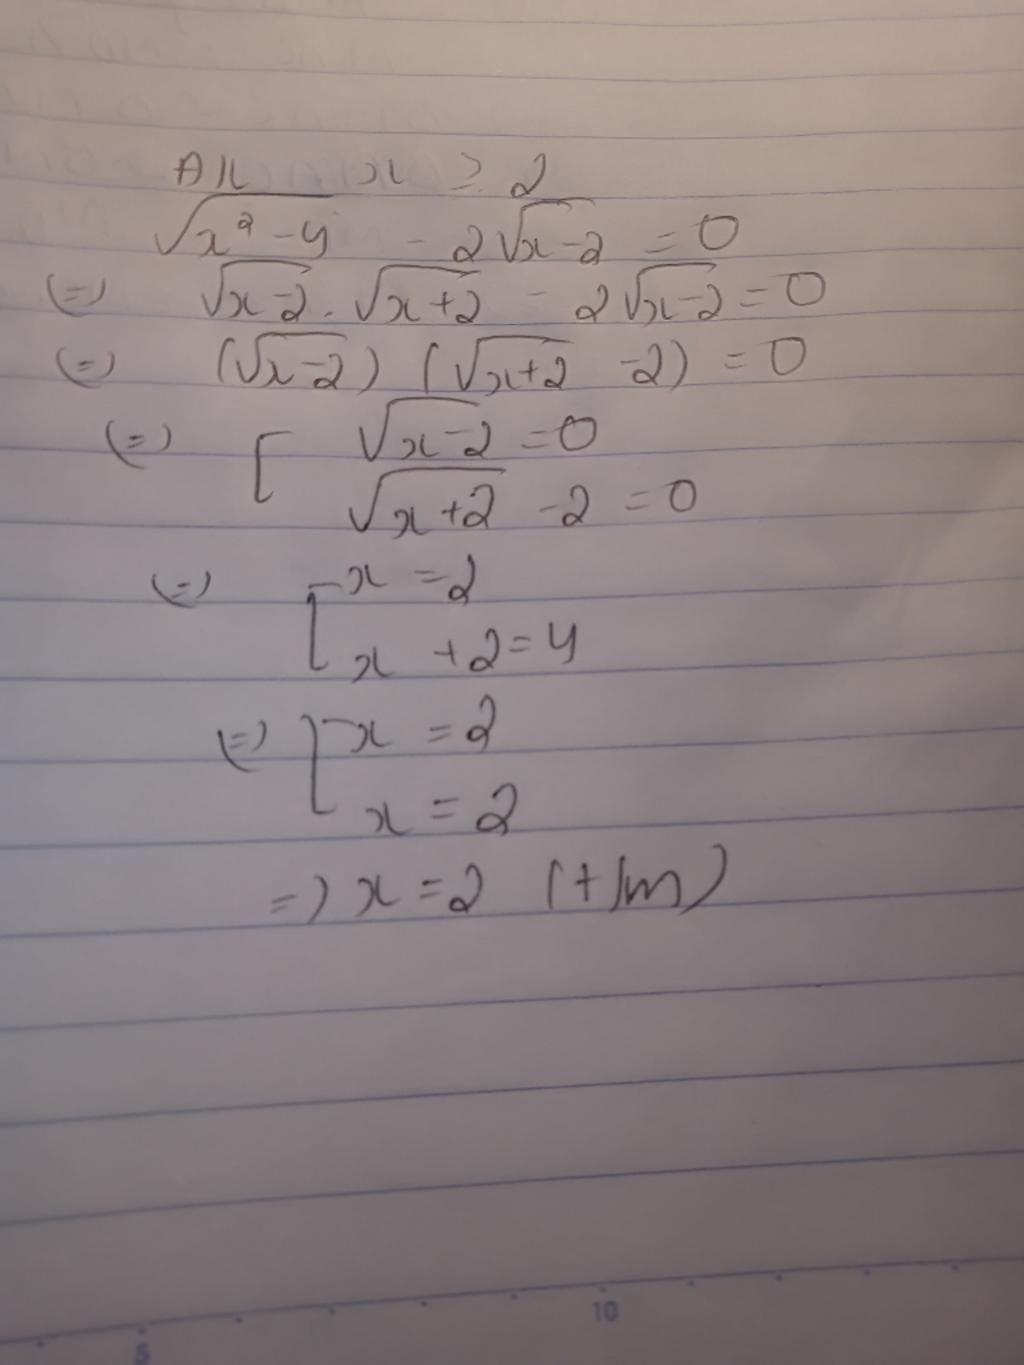 ĐK x ≥ 2
√(x² - 4) - 2√(x-2) = 0
(=) √(x-2) . √(x+2) - 2√(x-2) = 0
(=) (√(x-2)) (√(x+2) - 2) = 0
(=) [ √(x-2) = 0
√(x+2) - 2 = 0
(=) [ x = 2
x + 2 = 4
(=) [ x = 2
x = 2
=) x = 2 (t/m)
5 10